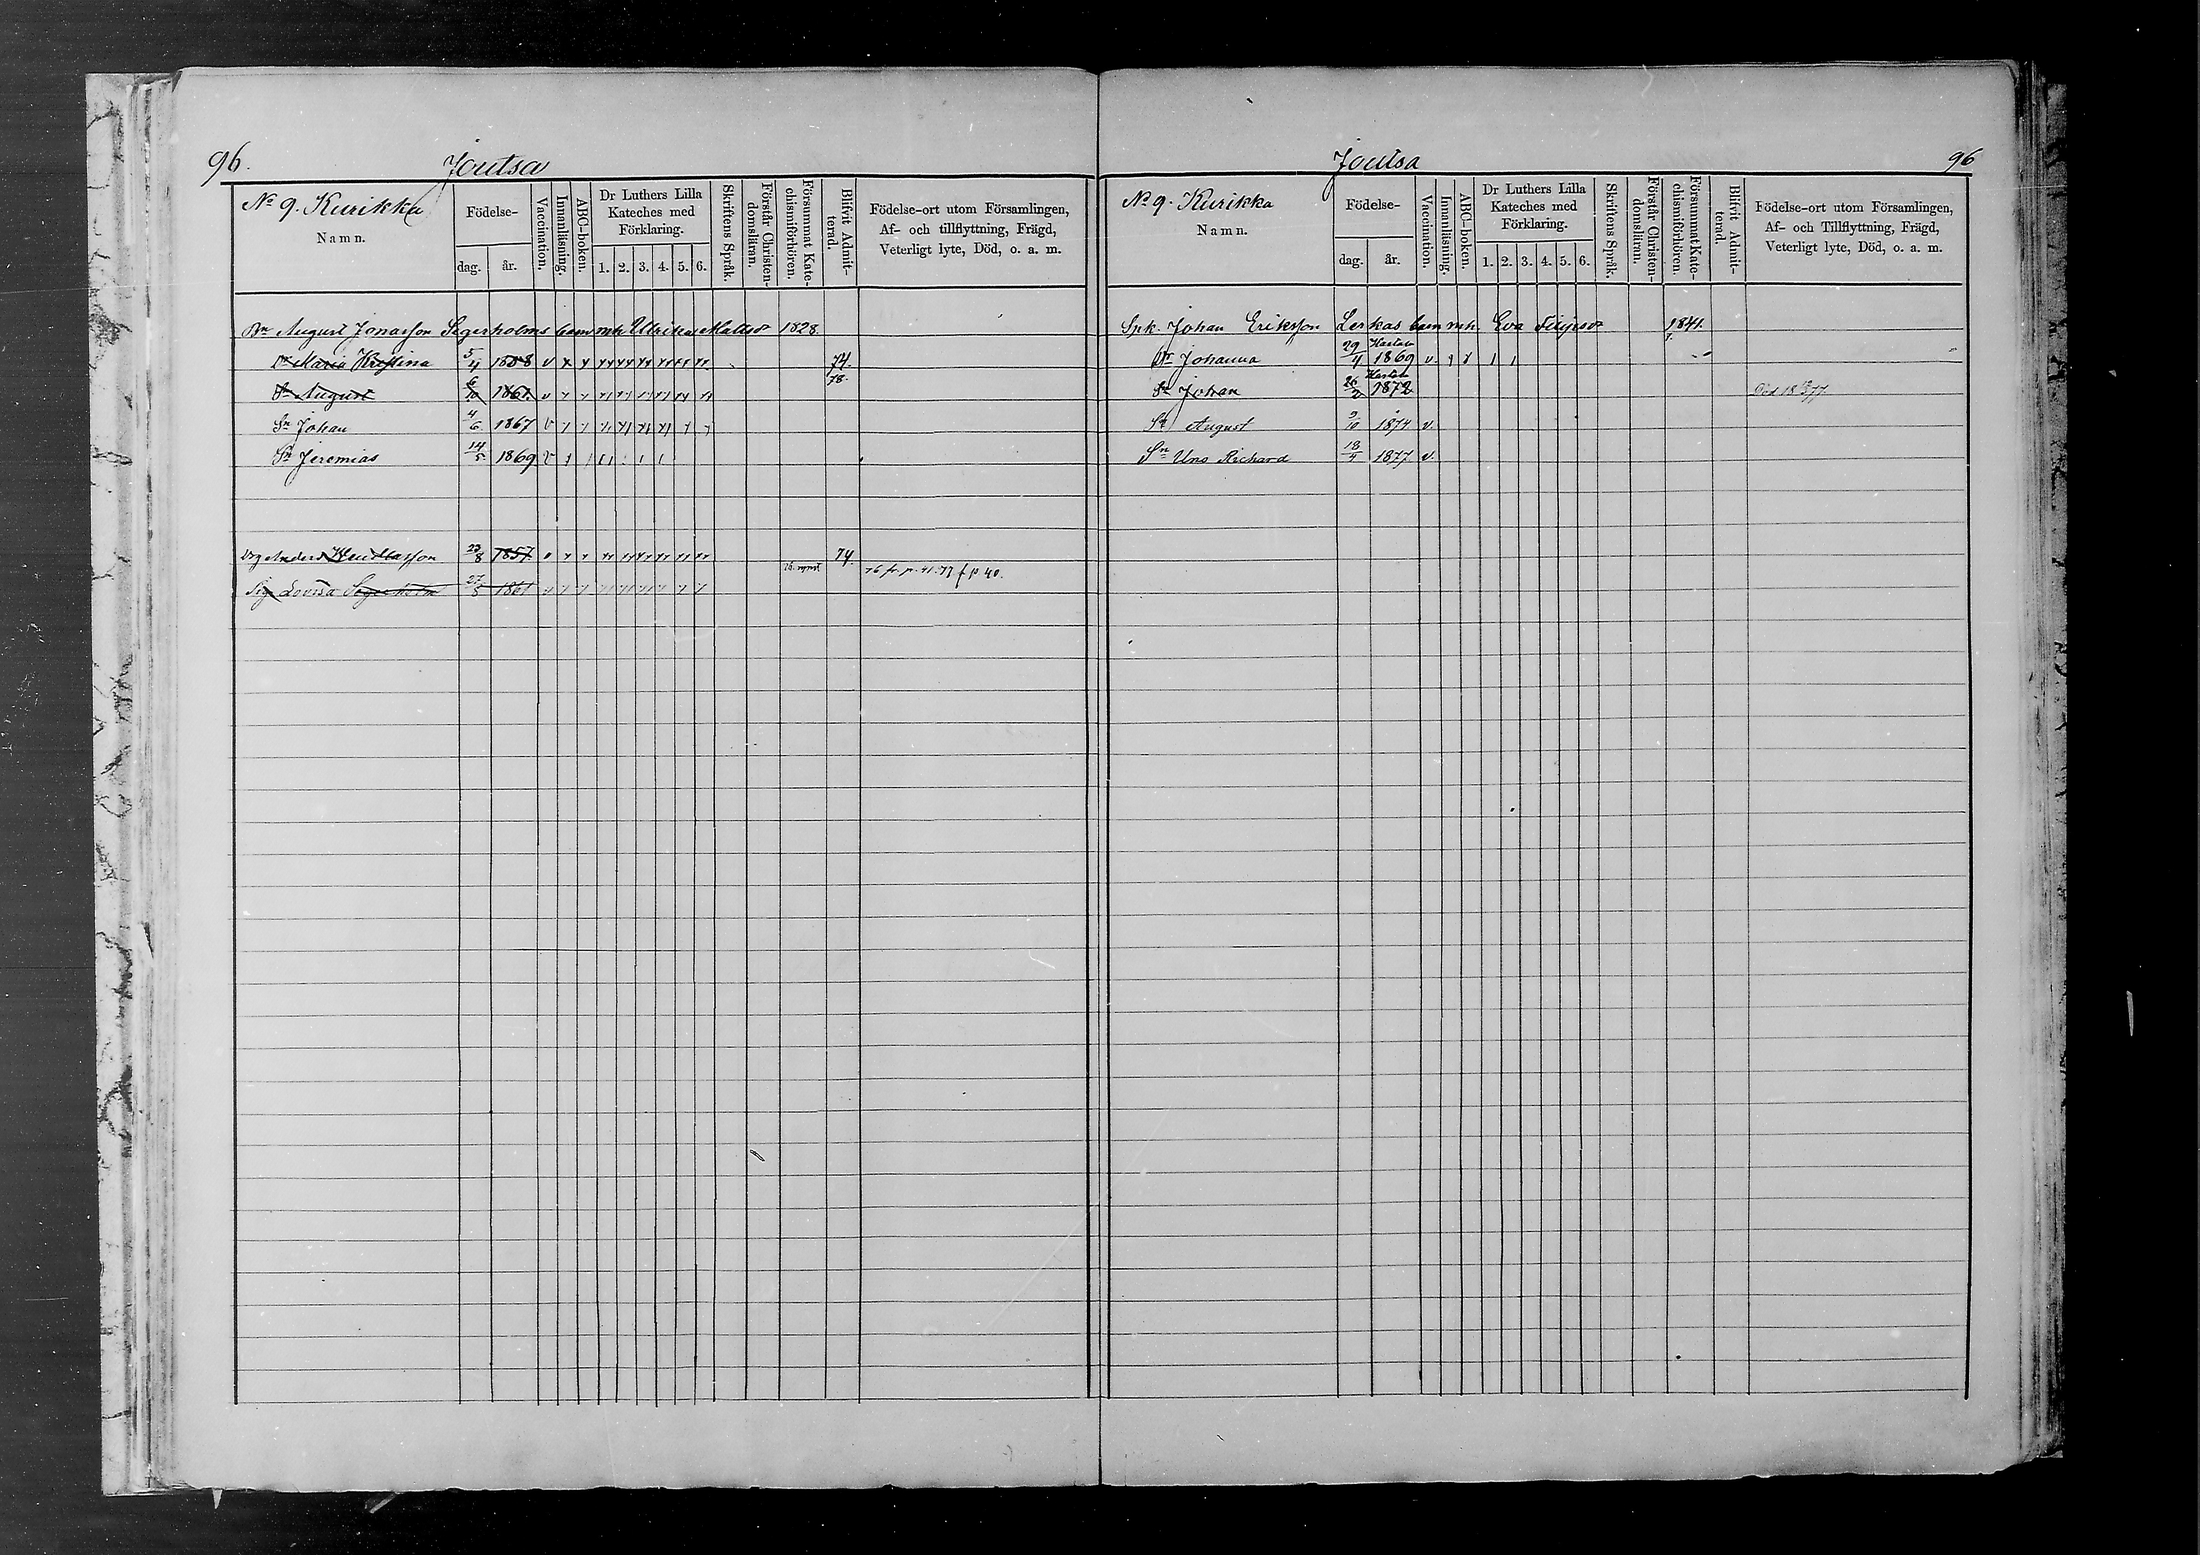 96.
Joutsa
No 9. Kurikka
Namn.
Födelse-
dag.
år.
Vaccination.
Innanläsning.
ABC-boken.
Dr Luthers Lilla
Kateches med
Förklaring.
1. 2. 3. 4. 5. 6.
Skriftens Språk.
Förstår Christen-
domsläran.
Försummat Kate-
chismiförhören.
Blifvit Admit-
terad.
Födelse-ort utom Församlingen,
Af- och tillflyttning, Frägd,
Veterligt lyte, Död, o. a. m.
August Jonasson Segerholms barn mh. Ulrika Mattsdr 1828
Dr Maria Kristina 5/4 1858 v 74.
Sn August 6/10 1861 v 78.
Sn Johan 4/6 1867 v
Sn Jeremias 14/5 1869 v
Drg Anders Henriksson 23/8 1857 v 74.
76 fr. p. 41. 77 f. p 40.
Lovisa Segerholm 27/5 1861
Joutsa
96
No 9. Kurikka
Namn.
Födelse-
dag.
år.
Vaccination.
Innanläsning.
ABC-boken.
Dr Luthers Lilla
Kateches med
Förklaring.
1. 2. 3. 4. 5. 6.
Skriftens Språk.
Förstår Christen-
domsläran.
Försummat Kate-
chismiförhören.
Blifvit Admit-
terad.
Födelse-ort utom Församlingen,
Af- och Tillflyttning, Frägd,
Veterligt lyte, Död, o. a. m.
Spk. Johan Eriksson Lerkas barn mh. Eva 1841.
Dr Johanna 29/4 1869 v
Sn Johan 26/2 1872 Död 18 77.
Sn August 9/10 1874 v.
Sn Uno Richard 18/4 1877 v.